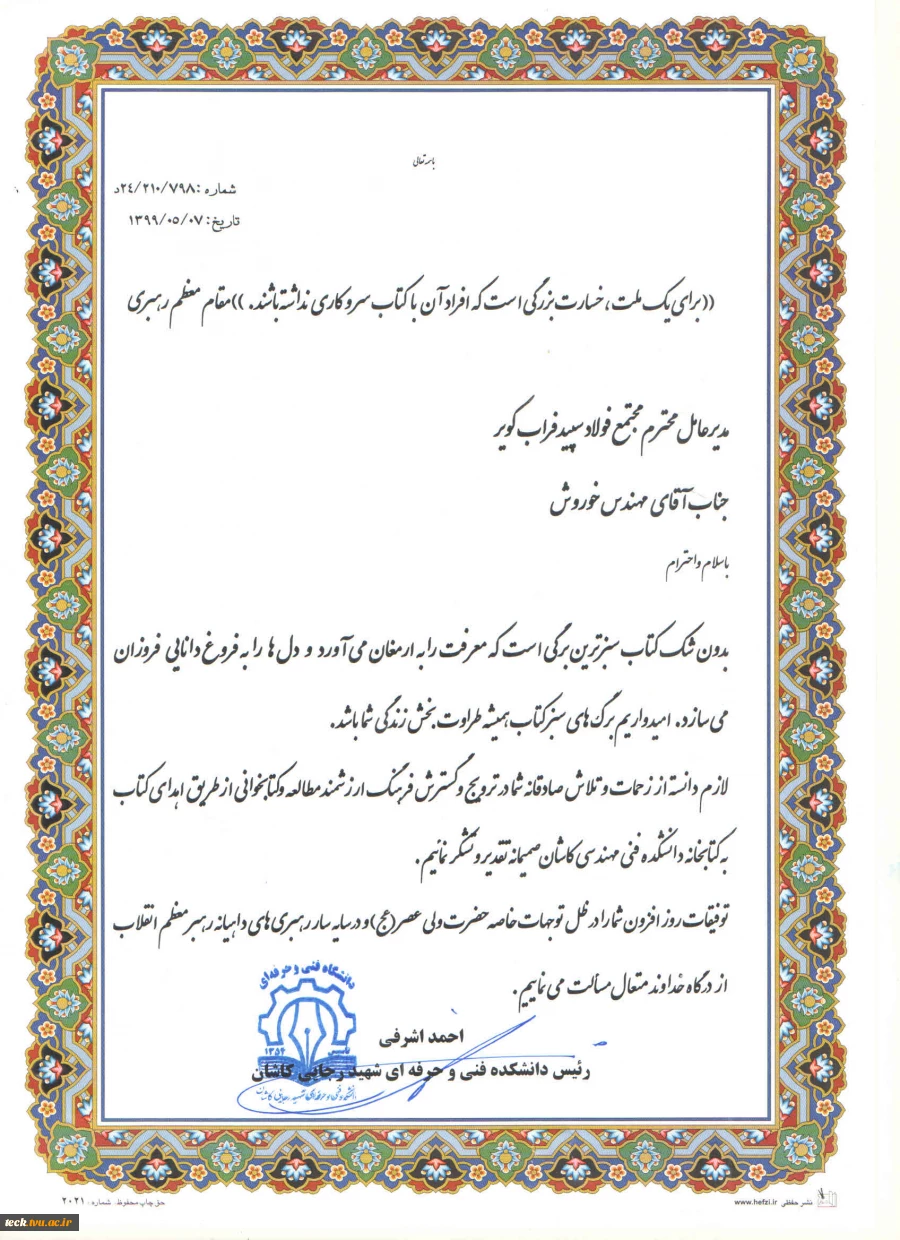 باسمه تعالی
شماره :۲۴/۲۱۰/۷۹۸د
تاریخ: ۱۳۹۹/۰۵/۰۷
((برای یک ملت، خسارت بزرگی است که افراد آن با کتاب سروکاری نداشته باشند. ))مقام معظم رهبری
مدیرعامل محترم مجتمع فولاد سپید فراب کویر
جناب آقای مهندس خوروش
باسلام واحترام
بدون شک کتاب سبزترین برگی است که معرفت را به ارمغان می آورد و دل ها را به فروغ دانایی فروزان
می سازد. امیدواریم برگ های سبز کتاب همیشه طراوت بخش زندگی شما باشد.
لازم دانسته از زحمات و تلاش صادقانه شما در ترویج و گسترش فرهنگ ارزشمند مطالعه وکتابخوانی از طریق اهدای کتاب
به کتابخانه دانشکده فنی مهندسی کاشان صمیمانه تقدیر و تشکر نمائیم .
توفیقات روز افزون شما را در ظل توجهات خاصه حضرت ولی عصر(عج)و در سایه سار رهبری های داهیانه رهبر معظم انقلاب
از درگاه خداوند متعال مسألت می نماییم .
دانشگاه فنی و حرفه‌ای
تاسیس ۱۳۵۴
احمد اشرفی
رئیس دانشکده فنی و حرفه ای شهید رجایی کاشان
دانشکده فنی و حرفه‌ای شهید رجایی کاشان
نشر حفظی www.hefzi.ir
حق چاپ محفوظ. شماره: ۲۰۲۱
teck.tvu.ac.ir